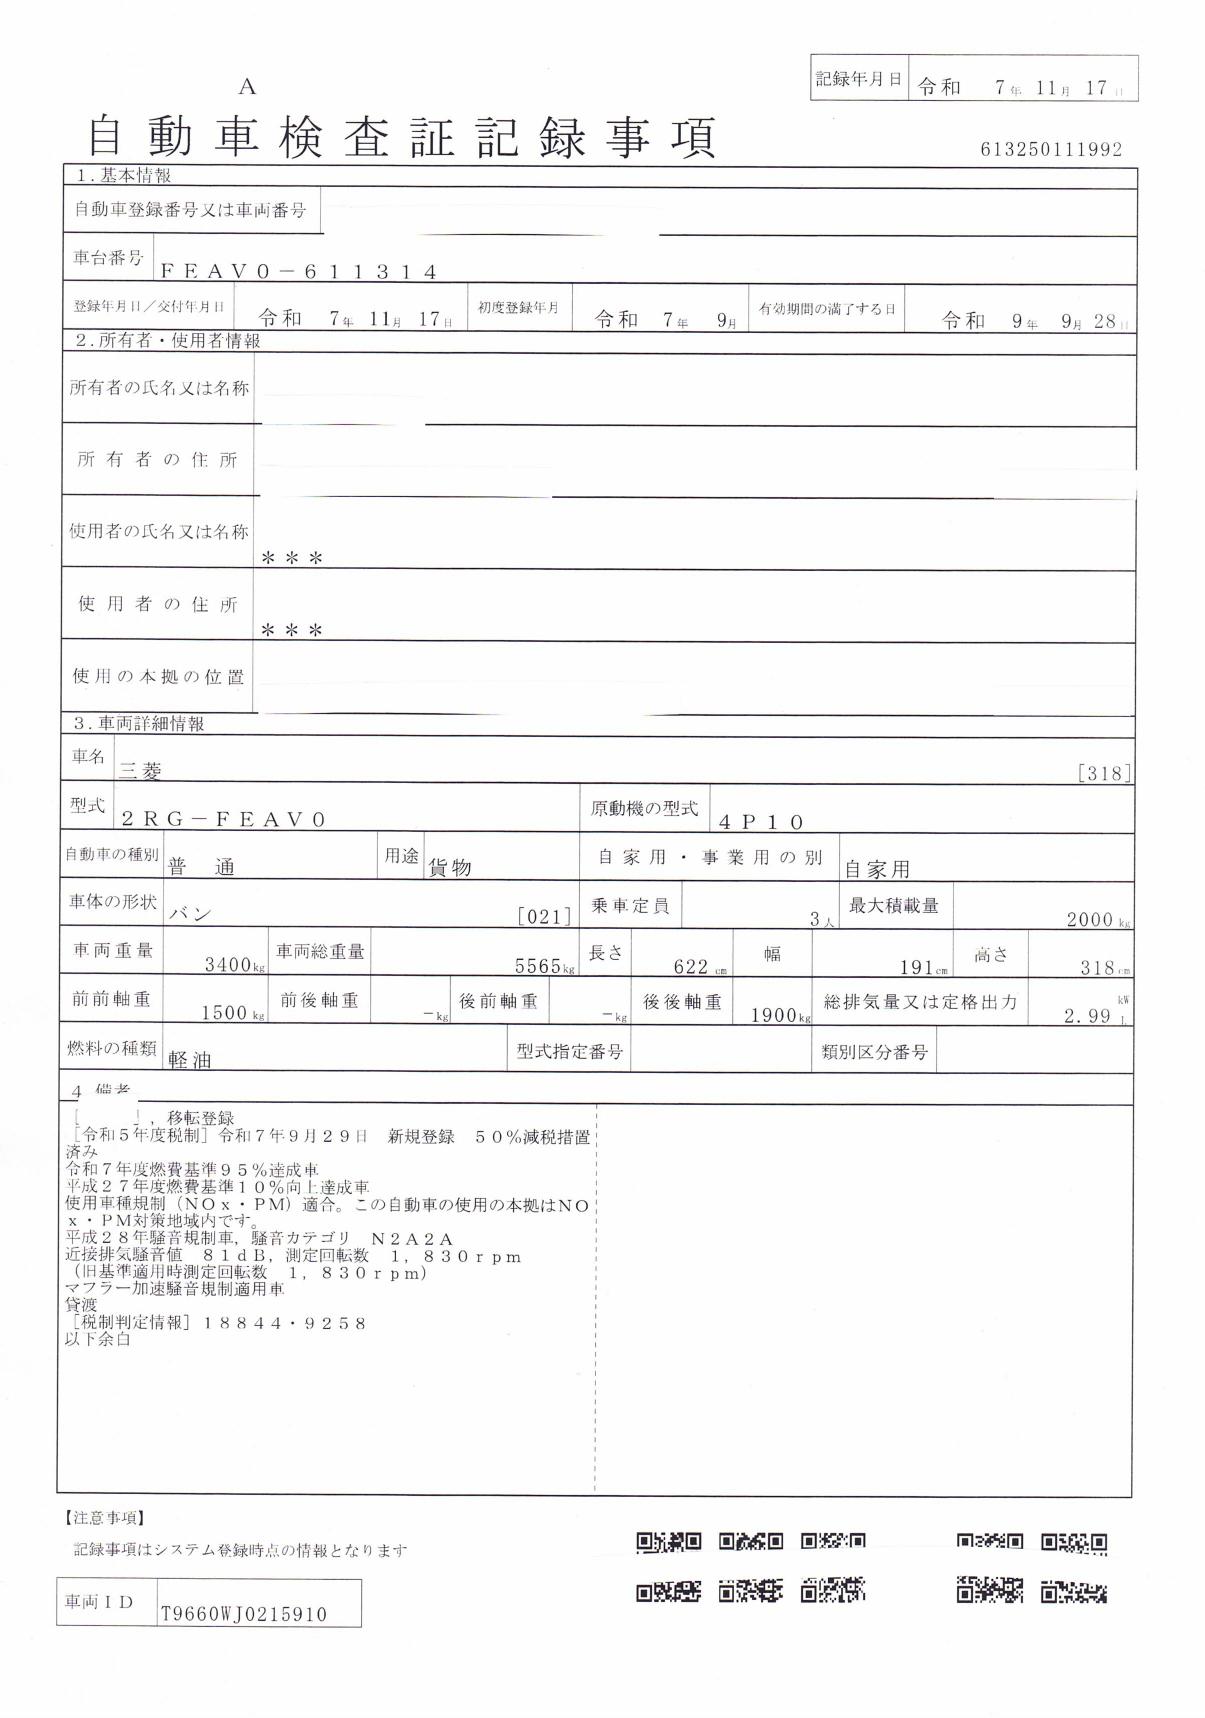 A
記録年月日 令和 7年 11月 17日
自動車検査証記録事項
613250111992
1.基本情報
自動車登録番号又は車両番号
車台番号 FEAV0-611314
登録年月日/交付年月日 令和 7年 11月 17日 初度登録年月 令和 7年 9月 有効期間の満了する日 令和 9年 9月 28日
2.所有者・使用者情報
所有者の氏名又は名称
所有者の住所
使用者の氏名又は名称 ***
使用者の住所 ***
使用の本拠の位置
3.車両詳細情報
車名 三菱 [318]
型式 2RG-FEAV0 原動機の型式 4P10
自動車の種別 普通 用途 貨物 自家用・事業用の別 自家用
車体の形状 バン [021] 乗車定員 3人 最大積載量 2000kg
車両重量 3400kg 車両総重量 5565kg 長さ 622cm 幅 191cm 高さ 318cm
前前軸重 1500kg 前後軸重 -kg 後前軸重 -kg 後後軸重 1900kg 総排気量又は定格出力 2.99 kW L
燃料の種類 軽油 型式指定番号 類別区分番号
4 備考
[ ],移転登録
[令和5年度税制]令和7年9月29日 新規登録 50%減税措置
済み
令和7年度燃費基準95%達成車
平成27年度燃費基準10%向上達成車
使用車種規制(NOx・PM)適合。この自動車の使用の本拠はNO
x・PM対策地域内です。
平成28年騒音規制車,騒音カテゴリ N2A2A
近接排気騒音値 81dB,測定回転数 1,830rpm
(旧基準適用時測定回転数 1,830rpm)
マフラー加速騒音規制適用車
貸渡
[税制判定情報]18844・9258
以下余白
【注意事項】
記録事項はシステム登録時点の情報となります
車両ID T9660WJ0215910